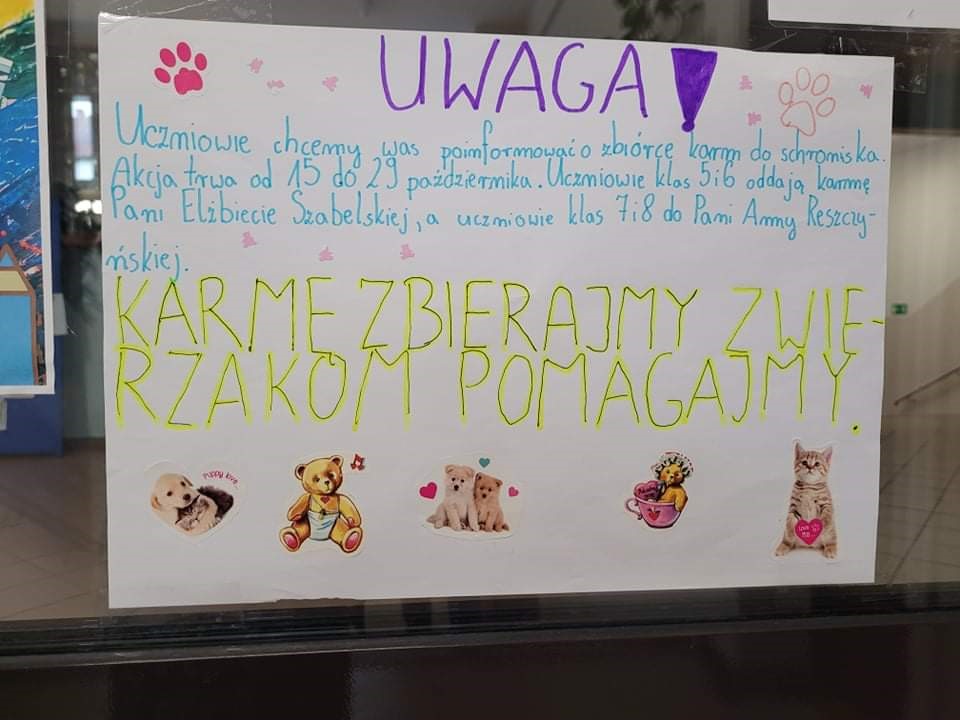 UWAGA!
Uczniowie chcemy was poinformować o zbiórce karm do schroniska.
Akcja trwa od 15 do 29 października. Uczniowie klas 5 i 6 oddają karmę
Pani Elżbiecie Szabelskiej, a uczniowie klas 7 i 8 do Pani Anny Reszczy-
ńskiej.
KARMĘ ZBIERAJMY ZWIE-
RZAKOM POMAGAJMY.
Puppy love